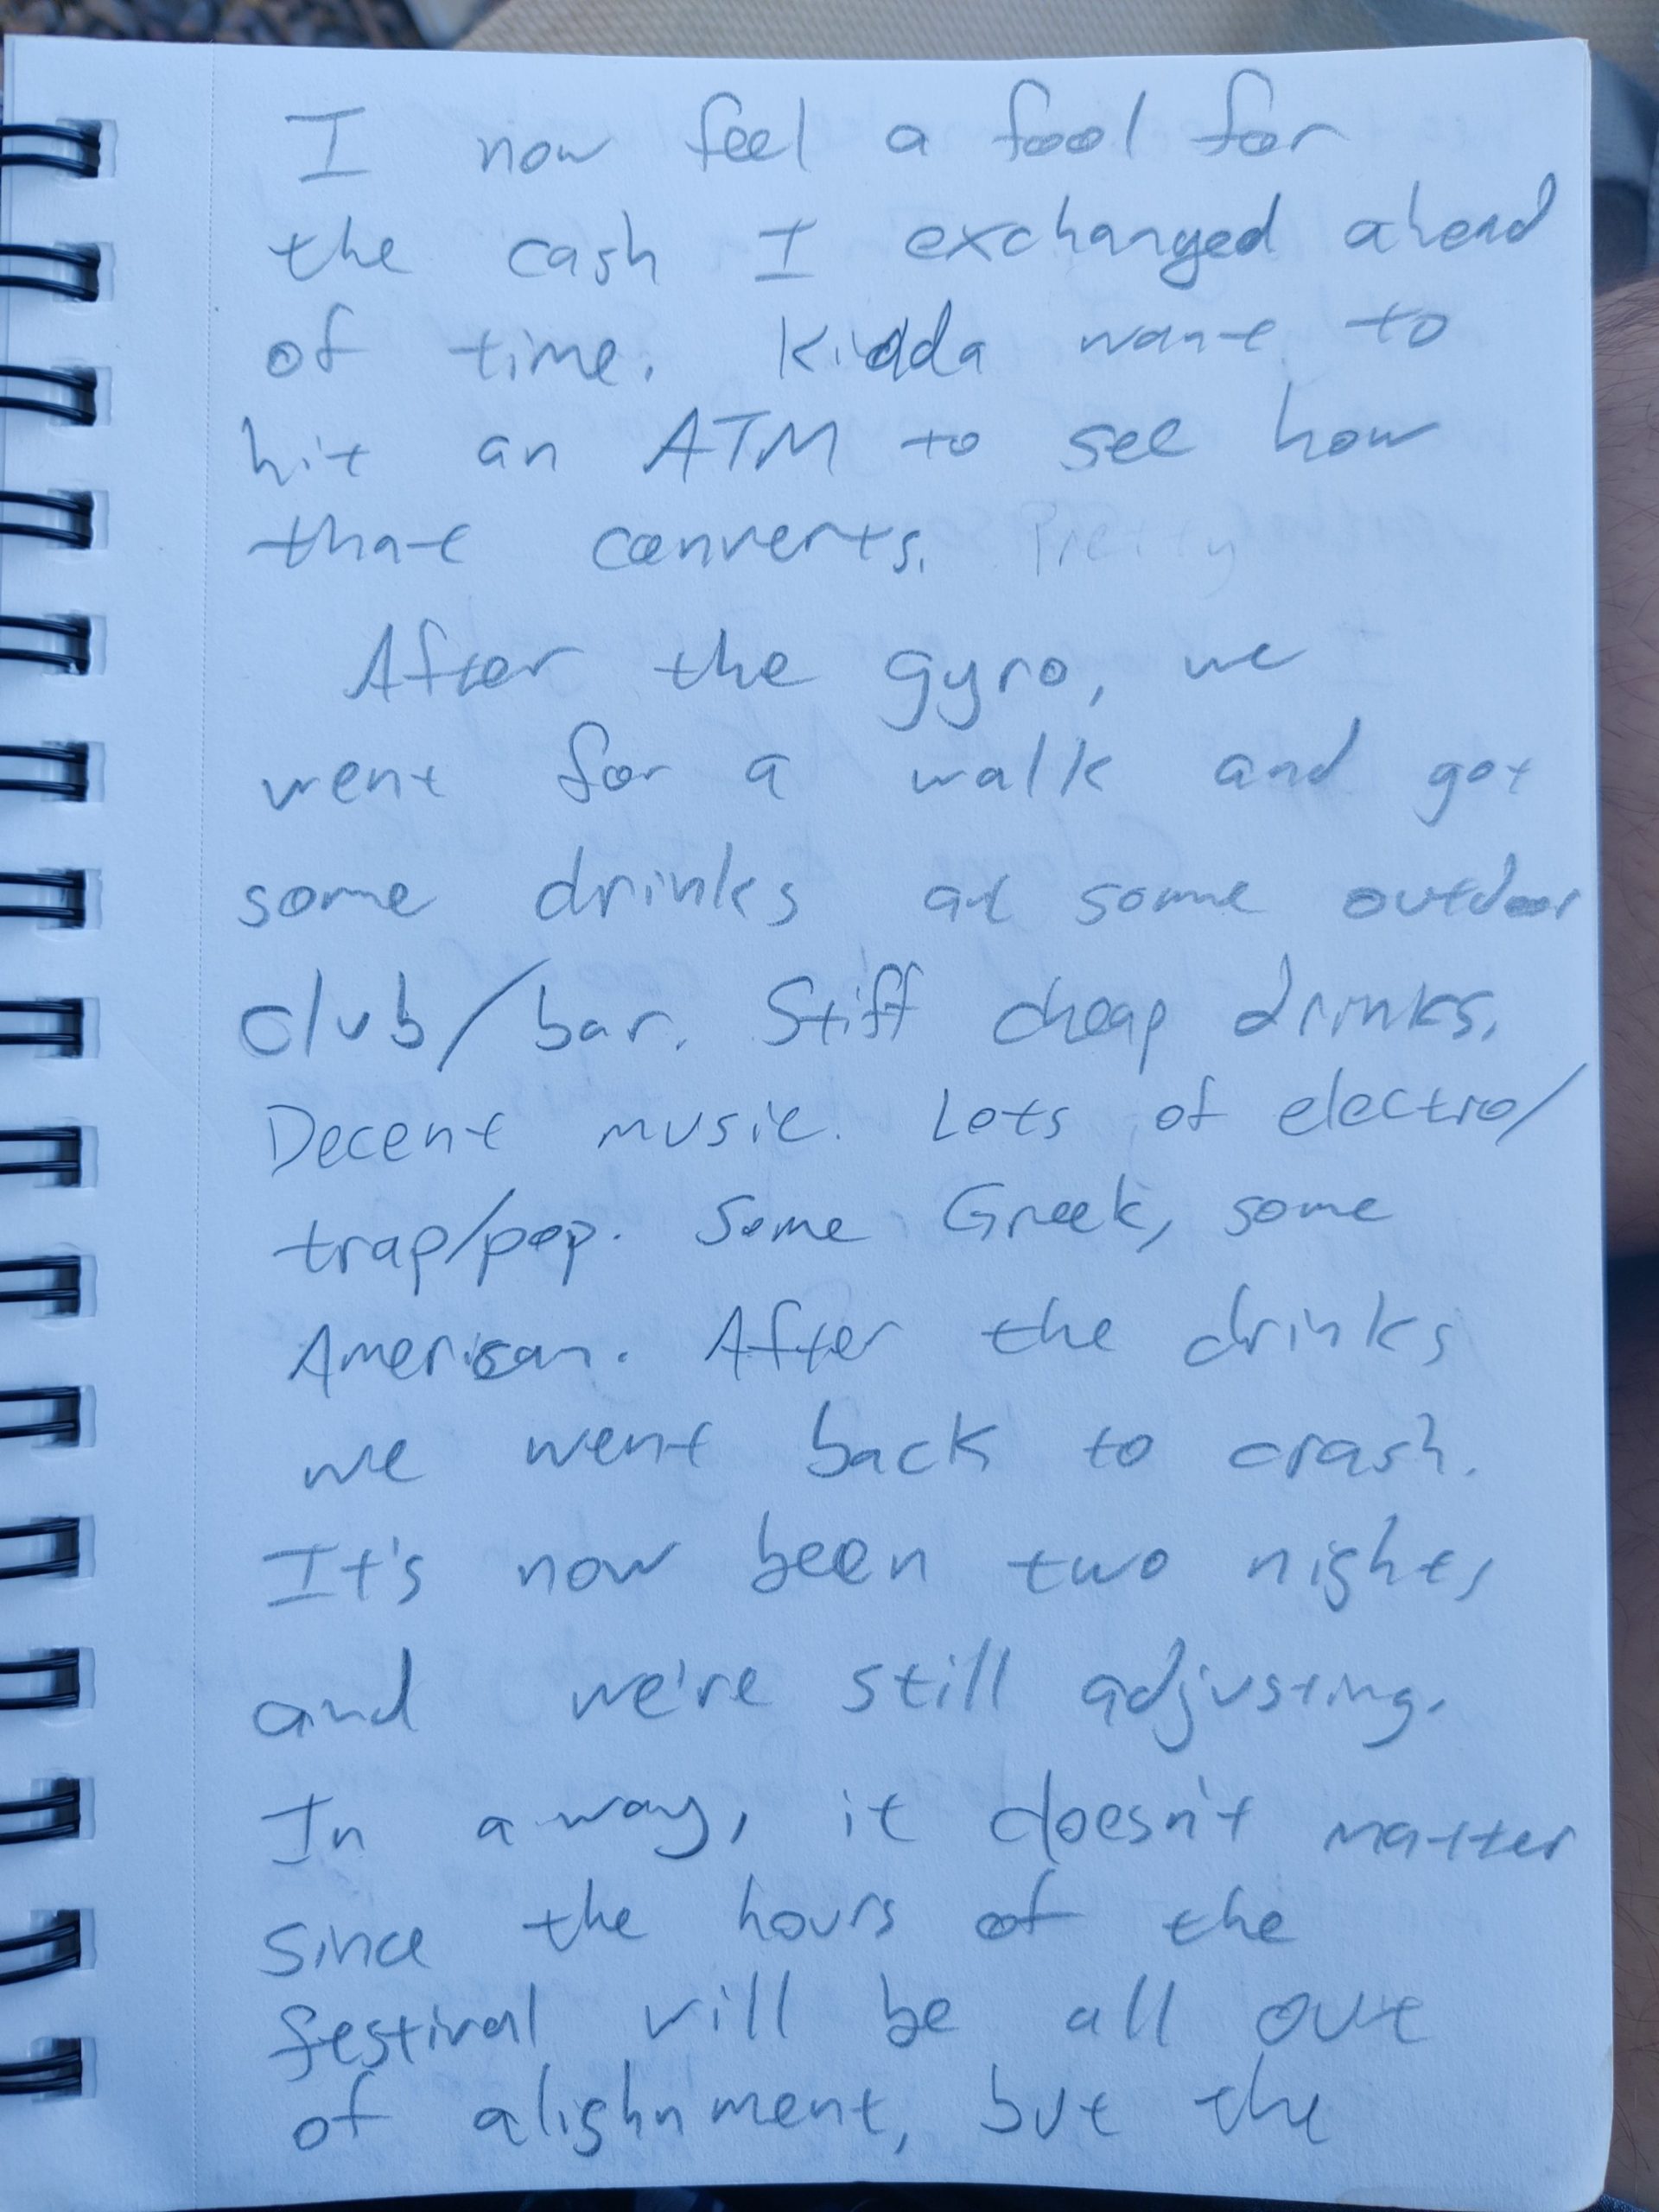 I now feel a fool for
the cash I exchanged ahead
of time. Kidda want to
hit an ATM to see how
that converts. Pretty
After the gyro, we
went for a walk and got
some drinks at some outdoor
club/bar. Stiff cheap drinks.
Decent music. Lots of electro/
trap/pop. Some Greek, some
American. After the drinks
we went back to crash.
It's now been two nights
and we're still adjusting.
In a way, it doesn't matter
since the hours of the
festival will be all out
of alighnment, but the